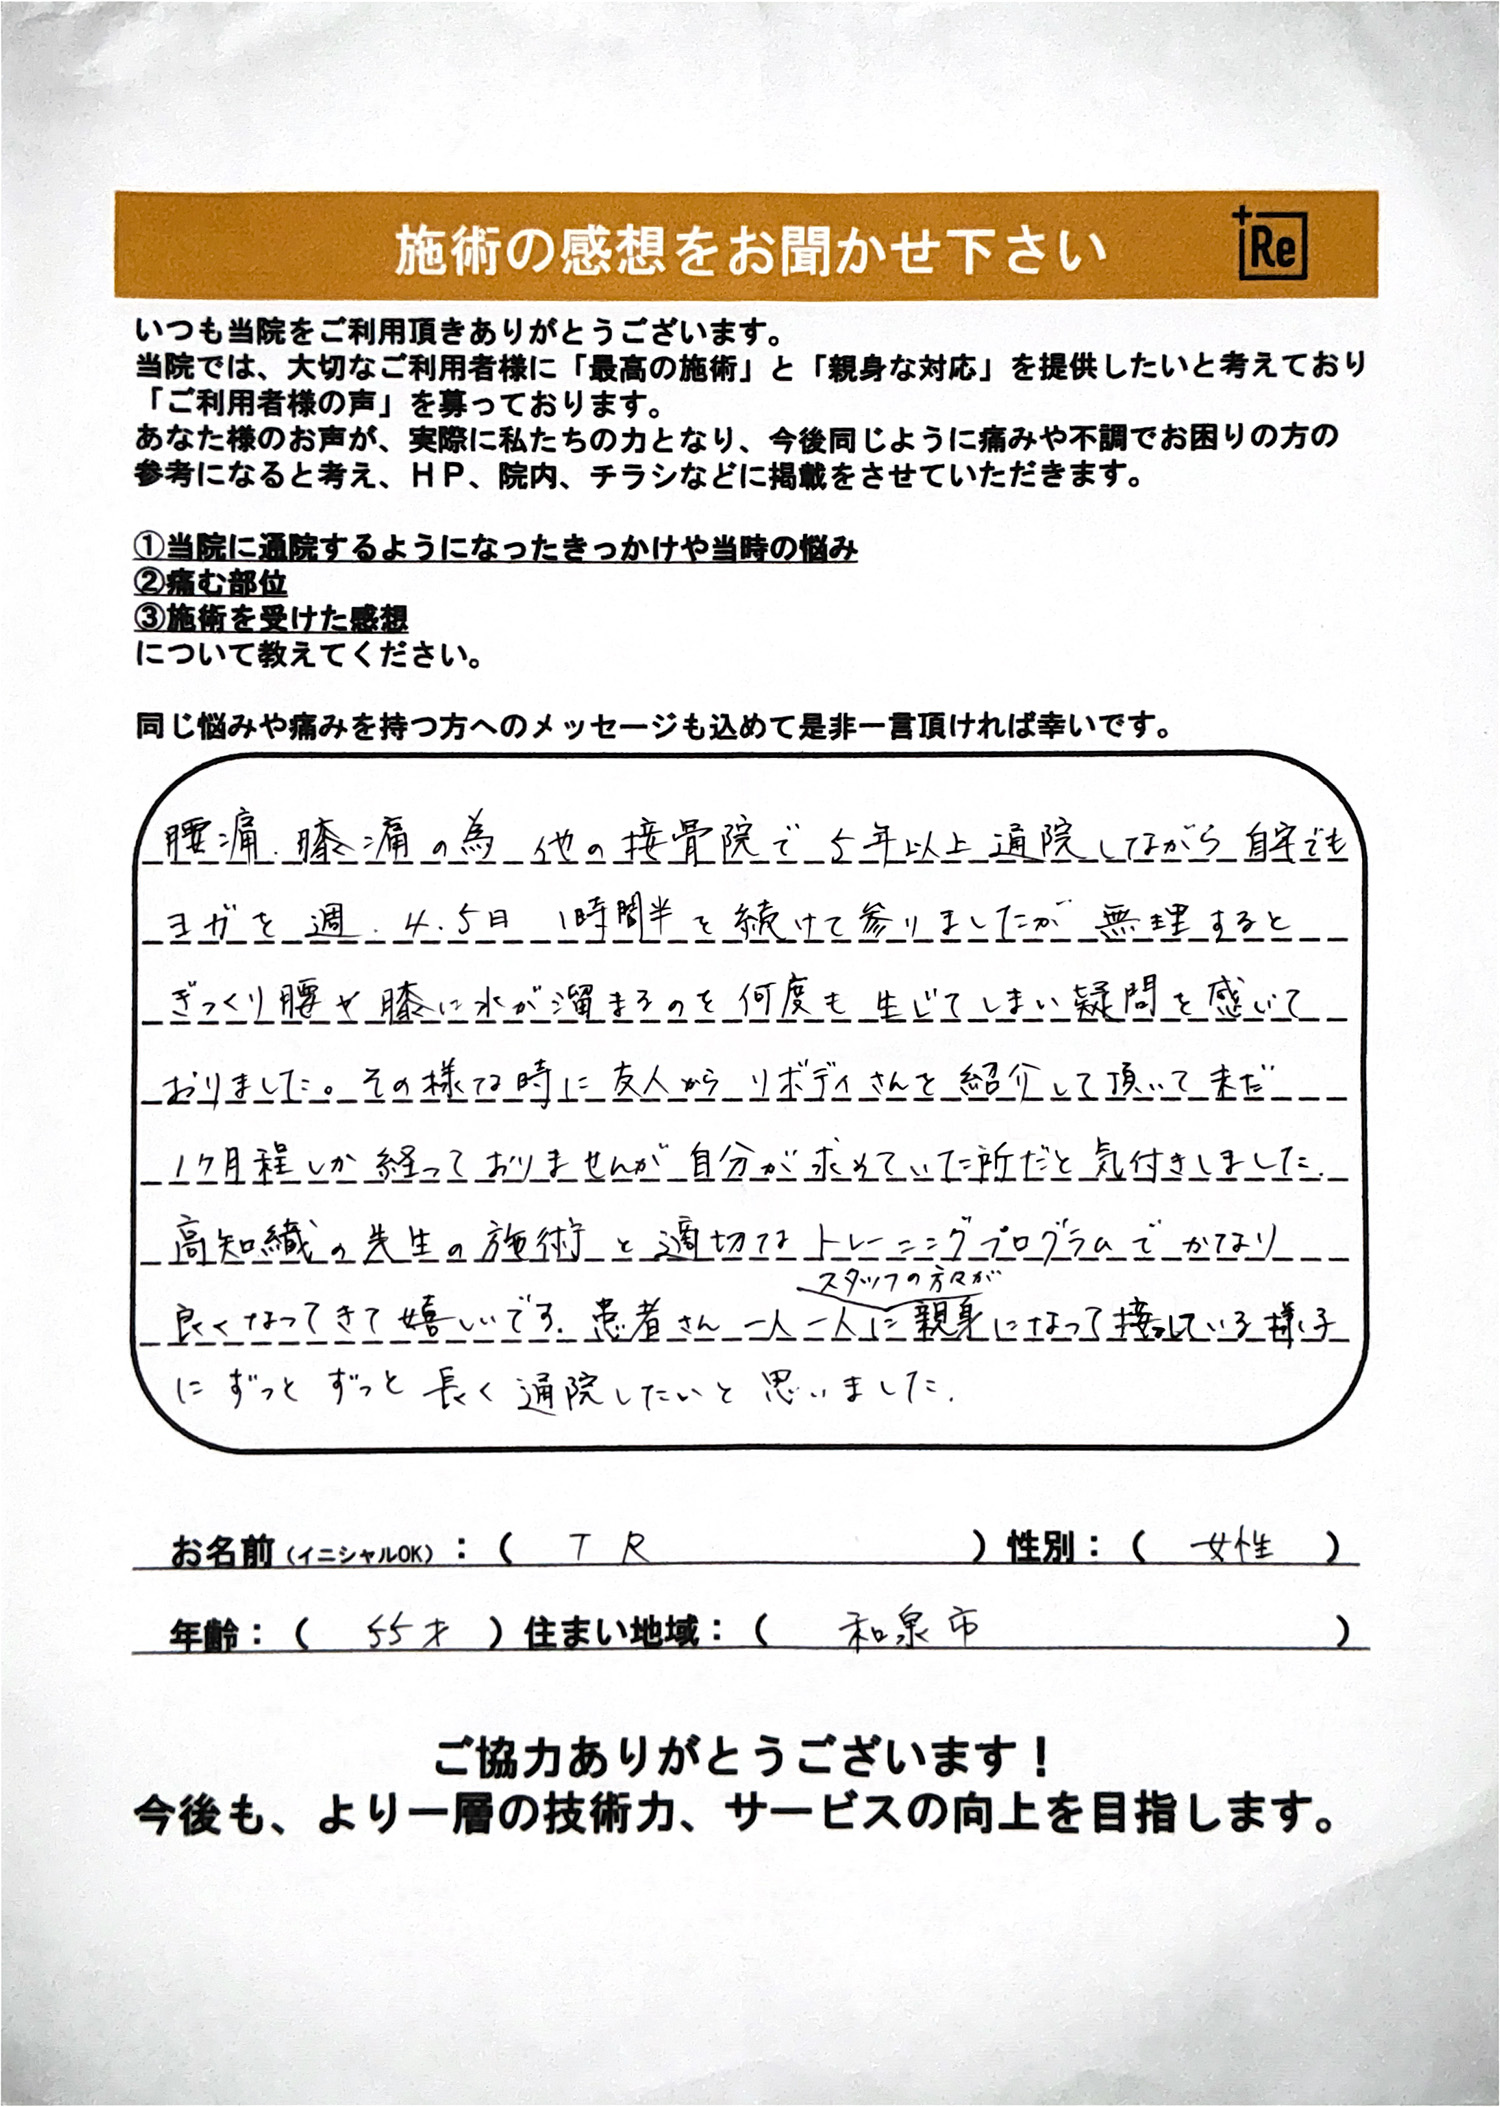 施術の感想をお聞かせ下さい
+Re
いつも当院をご利用頂きありがとうございます。
当院では、大切なご利用者様に「最高の施術」と「親身な対応」を提供したいと考えており
「ご利用者様の声」を募っております。
あなた様のお声が、実際に私たちの力となり、今後同じように痛みや不調でお困りの方の
参考になると考え、ＨＰ、院内、チラシなどに掲載をさせていただきます。
①当院に通院するようになったきっかけや当時の悩み
②痛む部位
③施術を受けた感想
について教えてください。
同じ悩みや痛みを持つ方へのメッセージも込めて是非一言頂ければ幸いです。
腰痛.膝痛の為 他の接骨院で 5年以上 通院してながら 自宅でも
ヨガを 週.4.5日 1時間半を続けて参りましたが 無理すると
ぎっくり腰や膝に水が溜まるのを何度も生じてしまい疑問を感いて
おりました。その様な時に友人から リボディさんを紹介して頂いて未だ
1ケ月程しか経っておりませんが自分が求めていた所だと気付きしました.
高知織の先生の施術と適切なトレーニングプログラムでかなり
スタッフの方々が
良くなってきて嬉しいです.患者さん一人一人に親身になって接している様子
にずっとずっと長く通院したいと思いました.
お名前(イニシャルOK)：（ T R ）性別：（ 女性 ）
年齢：（ 55才 ）住まい地域：（ 和泉市 ）
ご協力ありがとうございます！
今後も、より一層の技術力、サービスの向上を目指します。